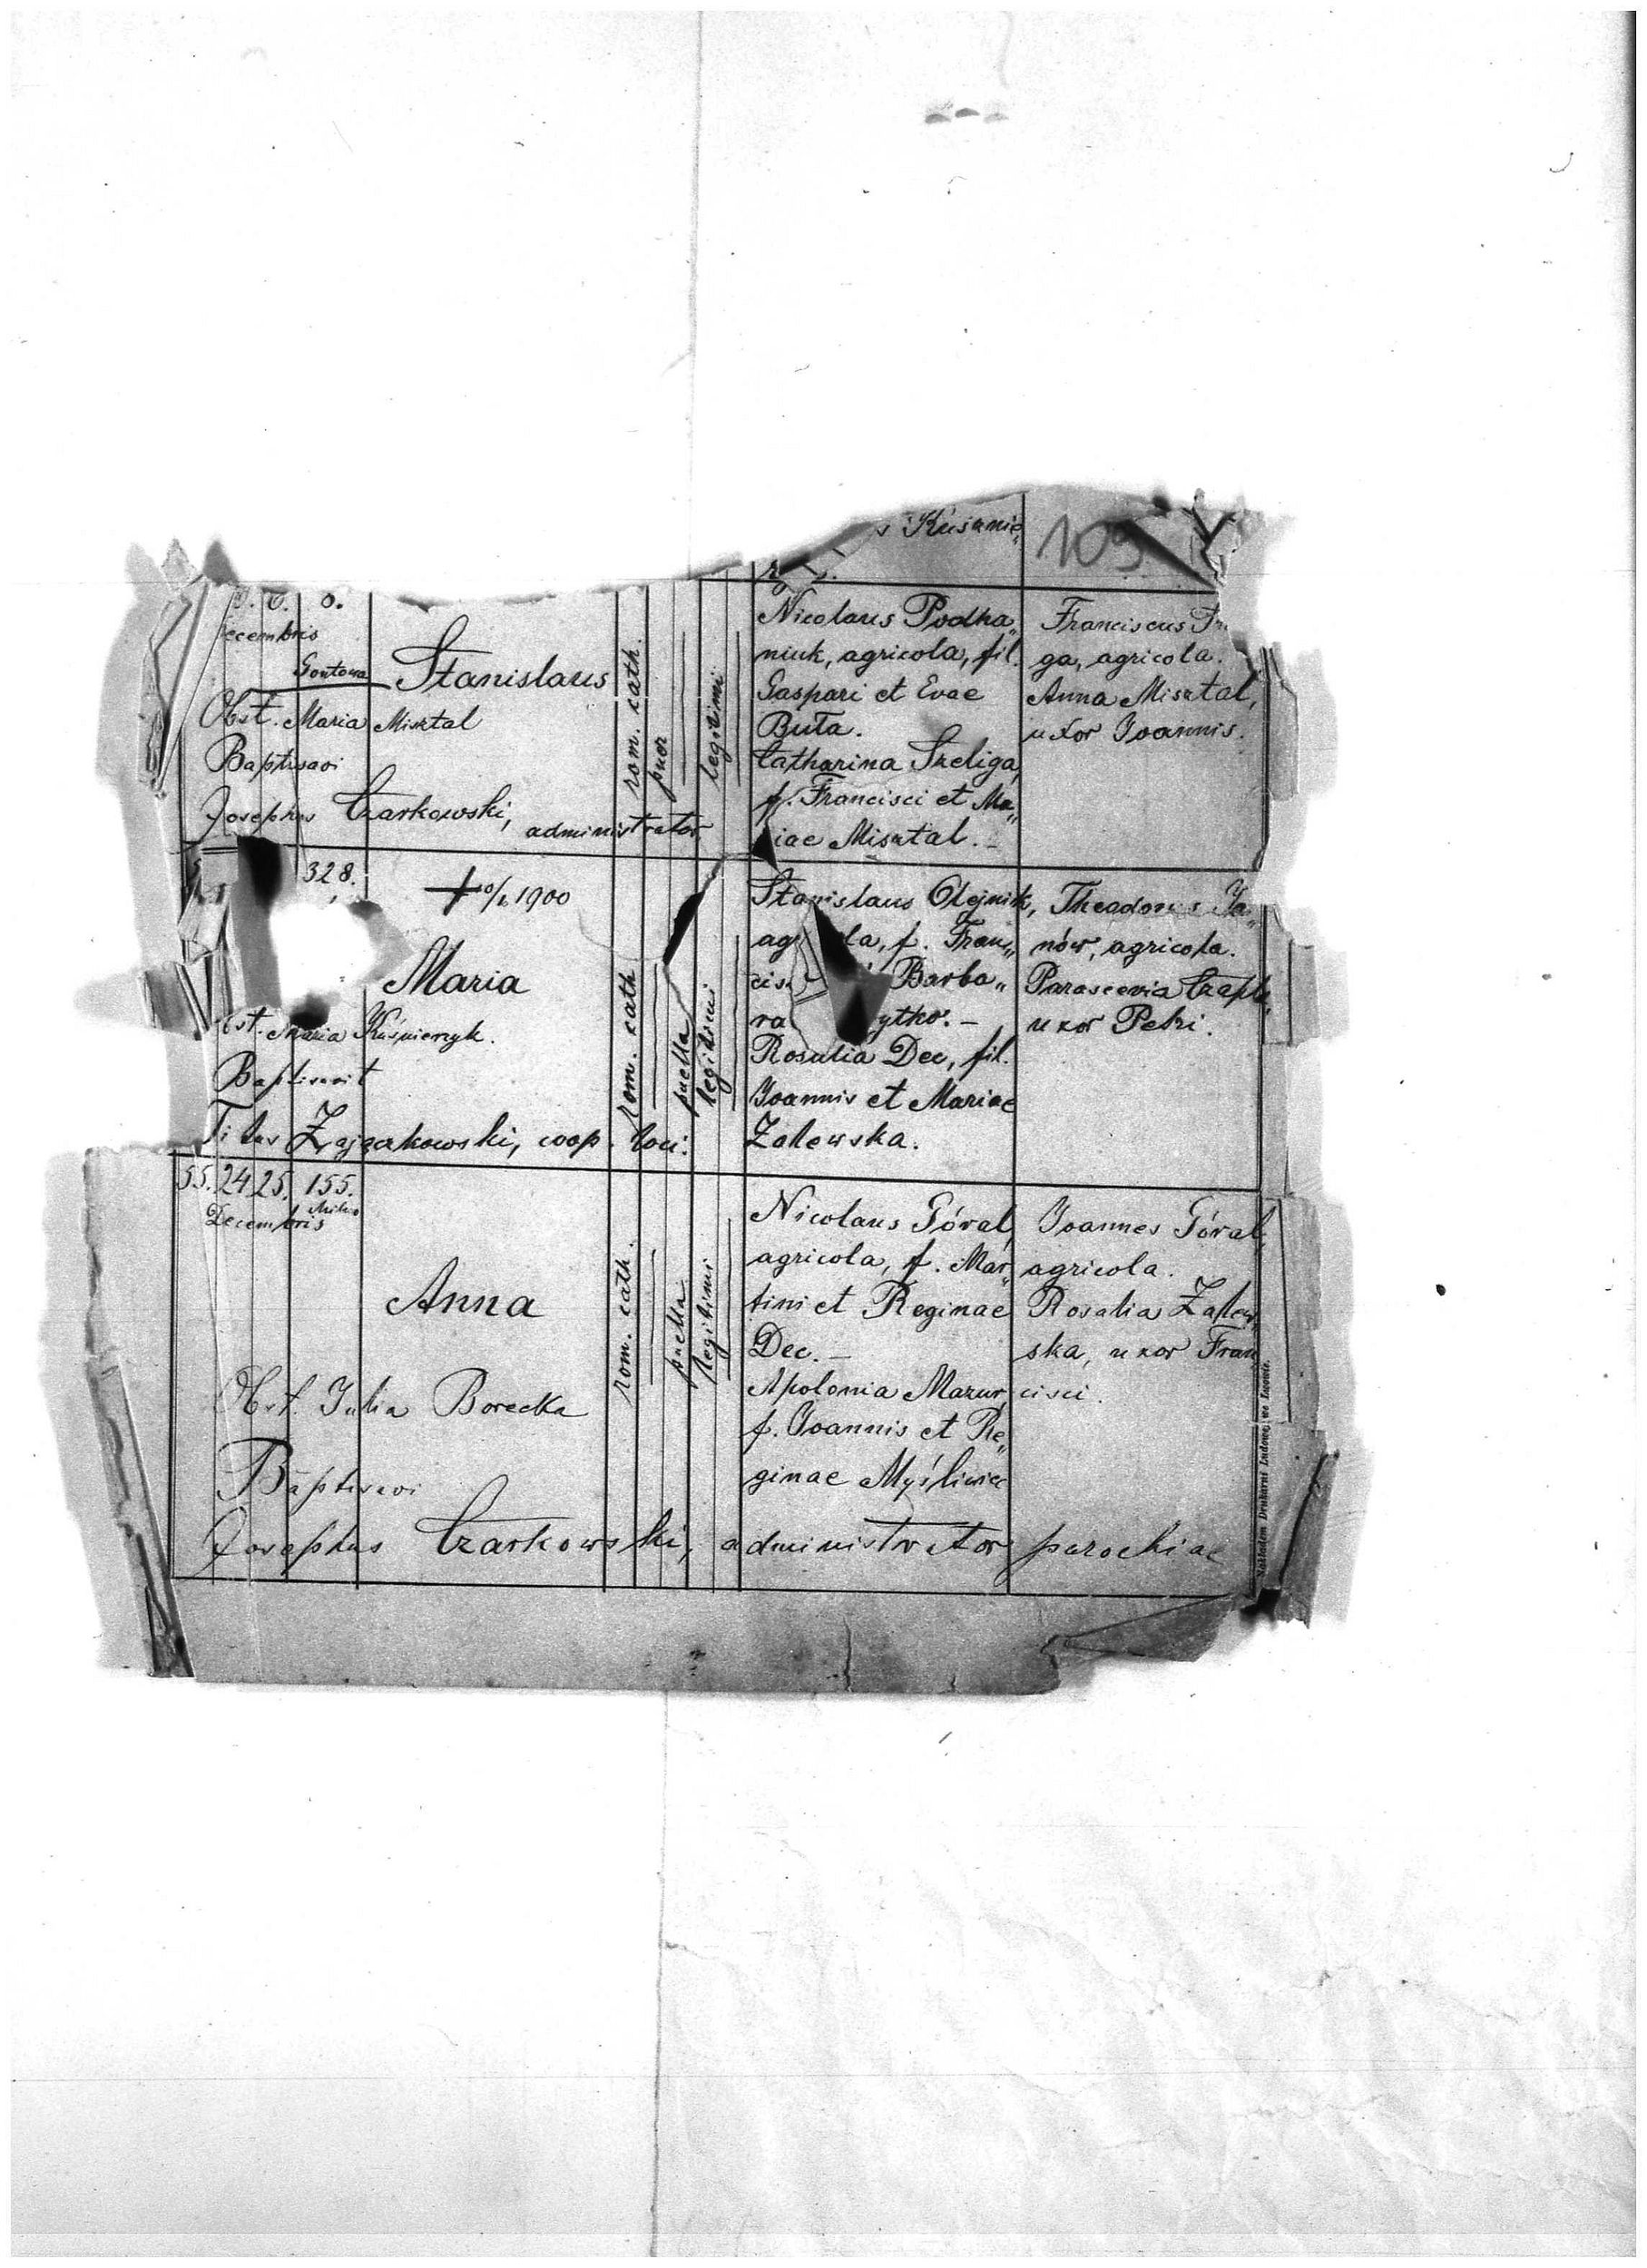 Kuśnie„
109
Decembris
Gontowa
Stanislaus
Obst. Maria Misztal
Baptisavi
Josephus Czarkowski, administrator
rom. cath.
puer
legitimi
Nicolaus Podha„
niuk, agricola, fil.
Gaspari et Evae
Buta.
Catharina Szeliga,
f. Francisci et Ma„
riae Misztal. –
Franciscus
ga, agricola.
Anna Misztal,
uxor Joannis.
328.
1900
Maria
Obst. Maria Kuśnierzyk.
Baptisavit
Titus Zajączkowski, coop. loci.
rom. cath
puella
legitimi
Stanislaus Olejnik,
f. Fran„
Barba„
ra ytko. –
Rosalia Dec, fil.
Joannis et Mariae
Zalewska.
Theodorus Ja„
nów, agricola.
Parascevia Czapla„
uxor Petri.
55. 24 25. 155.
Decembris
Anna
Obst. Julia Borecka
Baptisavi
Josephus Czarkowski, administrator parochiae
rom. cath.
puella
legitimi
Nicolaus Góral,
agricola, f. Mar„
tini et Reginae
Dec. –
Apolonia Mazur,
f. Joannis et Re„
ginae Myśliwiec
Joannes Góral,
agricola.
Rosalia Zalew„
ska, uxor Fran
cisci.
Nakładem Drukarni Ludowej we Lwowie.